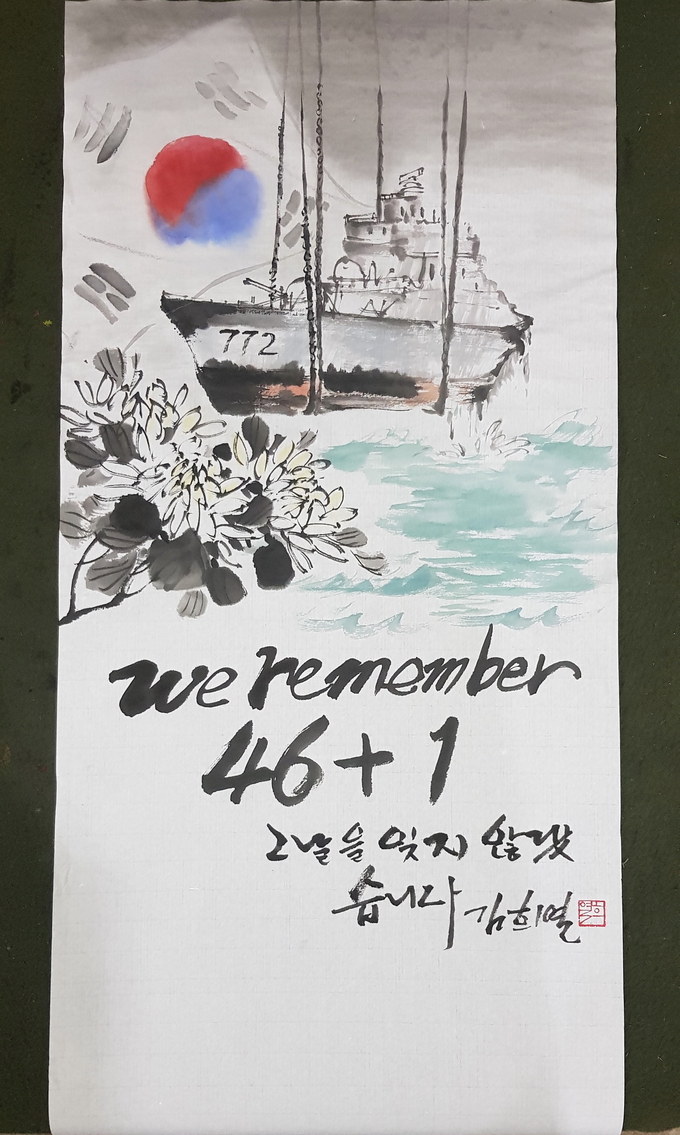 772
we remember
46+1
그날을 잊지 않겠
습니다 김희열